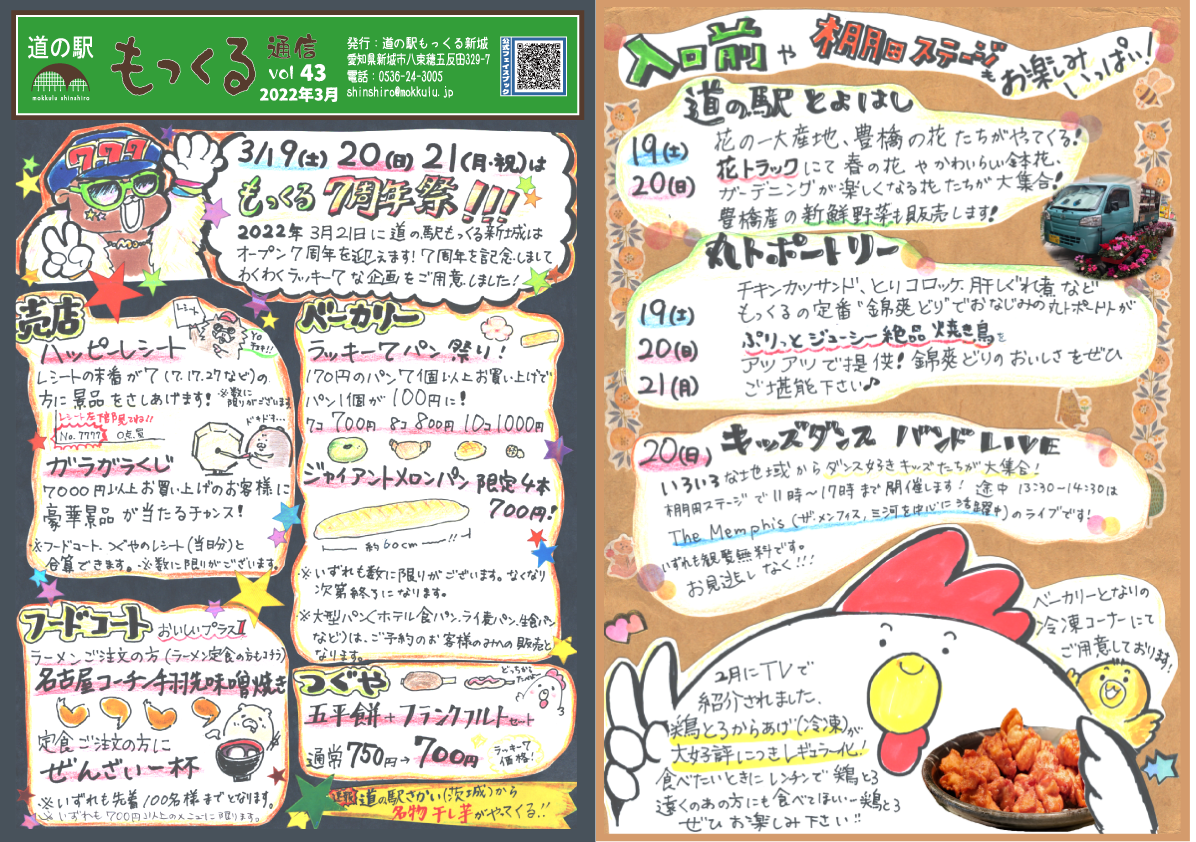 道の駅
mokkulu shinshiro
もっくる
通信
vol 43
2022年3月
発行：道の駅もっくる新城
愛知県新城市八束穂五反田329-7
電話：0536-24-3005
shinshiro@mokkulu.jp
公式フェイスブック
777
3/19(土) 20(日) 21(月・祝)は
もっくる 7周年祭!!!
2022年3月21日に道の駅もっくる新城は
オープン7周年を迎えます！7周年を記念しまして
わくわくラッキー7な企画をご用意しました！
売店
レシート
ハッピーレシート
レシートの末番が7(7.17.27など)の
方に景品をさしあげます！※数に
限りがございます
レシート左隅見てね!!
No.7777 0点買
ガラガラくじ
7000円以上お買い上げのお客様に
豪華景品が当たるチャンス！
※フードコート、つぐやのレシート(当日分)と
合算できます。※数に限りがございます。
ベーカリー
ラッキー7パン祭り！
170円のパン7個以上お買い上げで
パン1個が100円に！
7コ700円 8コ800円 10コ1000円
ジャイアントメロンパン 限定4本
700円！
約60cm
!!
※いずれも数に限りがございます。なくなり
次第終了になります。
※大型パン(ホテル食パン、ライ麦パン、生食パン
など)は、ご予約のお客様のみの販売と
なります。
フードコート おいしいプラス1
ラーメンご注文の方(ラーメン定食の方もコチラ)
名古屋コーチン手羽先味噌焼き
定食ご注文の方に
ぜんざい一杯
※いずれも先着100名様までとなります。
※いずれも700円以上のメニューに限ります。
つぐや
五平餅+フランクフルトセット
通常750円→700円
ラッキー7
価格！
道の駅さかい(茨城)から
名物干し芋がやってくる!!
入口前や棚田ステージもお楽しみいっぱい！
道の駅とよはし
19(土)
20(日)
花の一大産地、豊橋の花たちがやってくる！
花トラックにて春の花やかわいらしい鉢花、
ガーデニングが楽しくなる花たちが大集合！
豊橋産の新鮮野菜も販売します！
丸トポートリー
19(土)
20(日)
21(月)
チキンカツサンド、とりコロッケ、肝しぐれ煮など
もっくるの定番"錦爽どり"でおなじみの丸トポートリーが
ぷりっとジューシー絶品焼き鳥を
アツアツで提供！錦爽どりのおいしさをぜひ
ご堪能下さい♪
20(日) キッズダンス バンドLIVE
いろいろな地域からダンス好きキッズたちが大集合！
棚田ステージで11時～17時まで開催します！途中13:30～14:30は
The Memphis(ザ・メンフィス、三河を中心に活躍中)のライブです！
いずれも観覧無料です。
お見逃しなく!!!
ベーカリーとなりの
冷凍コーナーにて
ご用意しております！
2月にTVで
紹介されました、
鶏とろからあげ(冷凍)が
大好評につきレギュラー化！
食べたいときにレンチンで鶏とろ
遠くのあの方にも食べてほしい鶏とろ
ぜひお楽しみ下さい!!